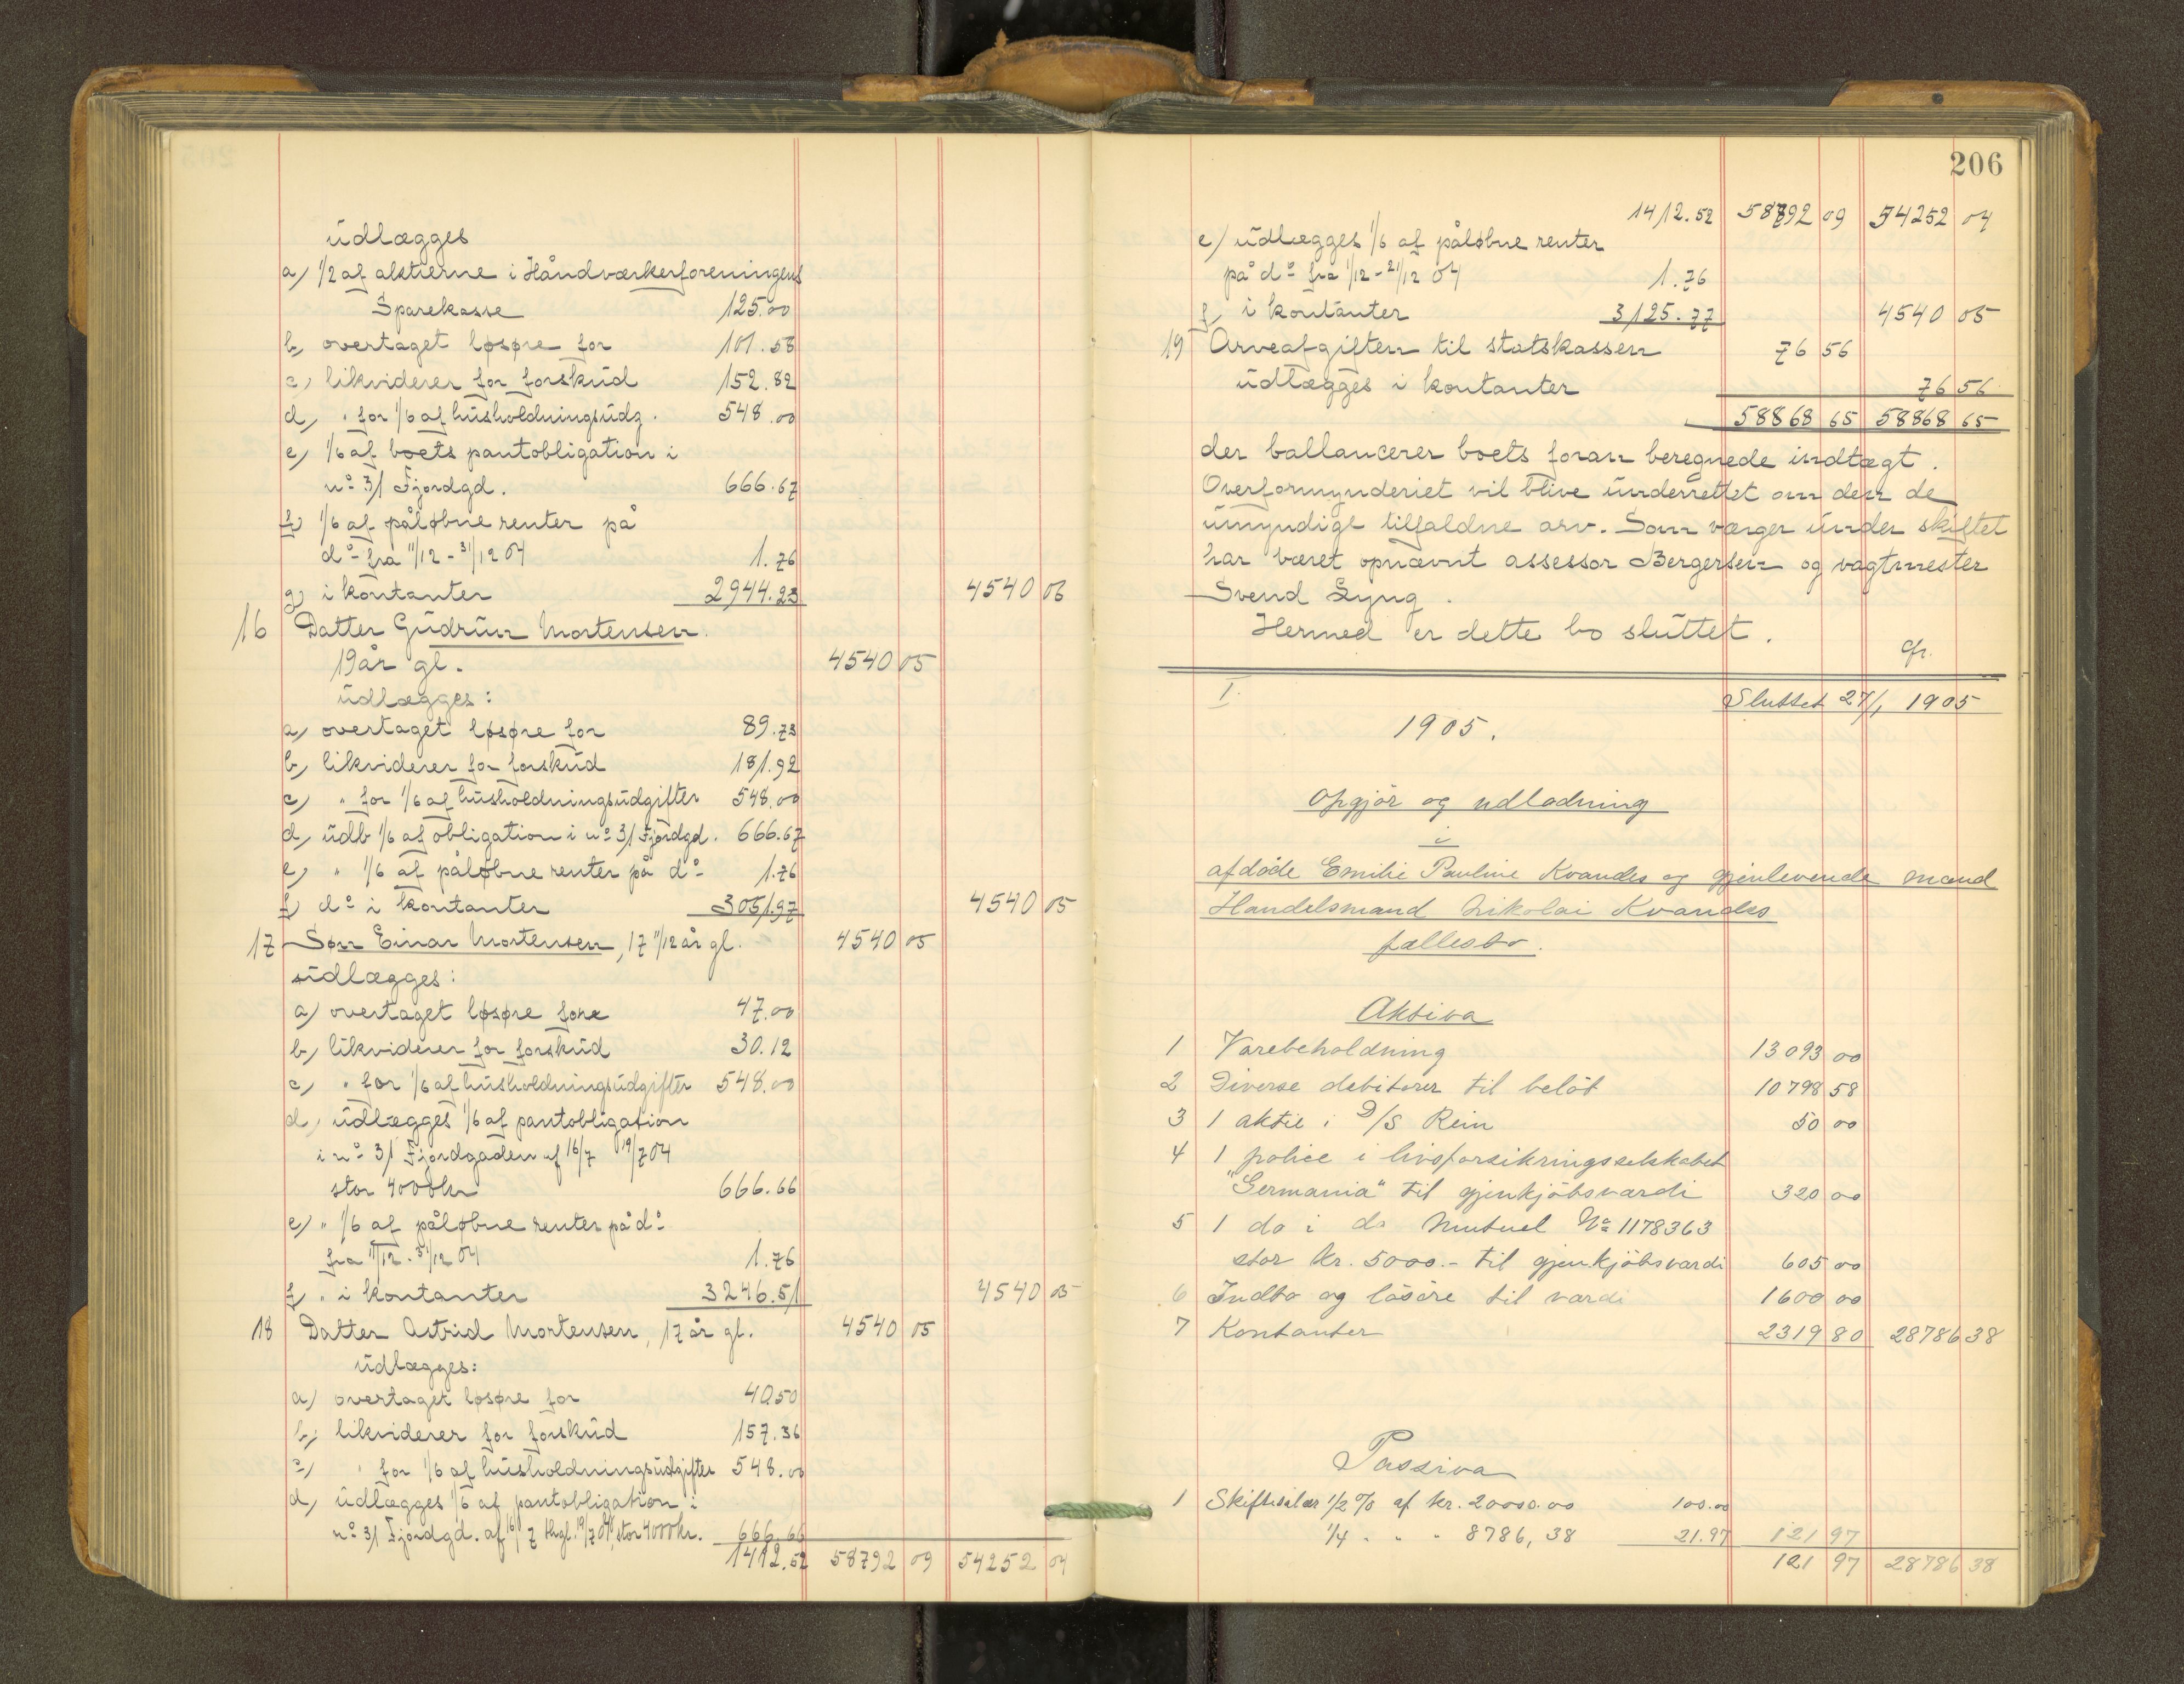 udlægges
a) 1/2 af aktierne i Håndværkerforeningens
Sparekasse 125.00
b, overtaget løsøre for 101.58
c, likviderer for forskud 152.82
d, " for 1/6 af husholdningsudg. 548.00
e, 1/6 af boets pantobligation i
no 31 Fjordgd. 666.67
f) 1/6 af påløbne renter på
do fra 11/12 - 31/12 04 1.76
g) i kontanter 2944.23 4540 06
16 Datter Gudrun Mortensen.
19 år gl. 4540 05
udlægges:
a, overtaget løsøre for 89.73
b, likviderer for forskud 181.92
c, " for 1/6 af husholdningsudgifter 548.00
d, udb 1/6 af obligation i no 31 Fjordgd. 666.67
e, " 1/6 af påløbne renter på do 1.76
f) do i kontanter 3051.97 4540 05
17 Søn Einar Mortensen, 17 11/12 år gl. 4540 05
udlægges:
a) overtaget løsøre fore 47.00
b, likviderer for forskud 30.12
c, " for 1/6 af husholdningsudgifter 548.00
d, udlægges 1/6 af pantobligation
i no 31 Fjordgaden af 16/7 19/7 04
stor 4000 kr 666.66
e) " 1/6 af påløbne renter på do
fra 11/12 - 31/12 04 1.76
f, " i kontanter 3246.51 4540 05
18 Datter Astrid Mortensen, 17 år gl. 4540 05
udlægges:
a) overtaget løsøre for 40.50
b, likviderer for forskud 157.36
c, " for 1/6 af husholdningsudgifter 548.00
d, udlægges 1/6 af pantobligation i
no 31 Fjordgd. af 16/7 thgl. 19/7 04, stor 4000 kr. 666.66
1412.52 58792 09 54252 04
206
1412.52 58792 09 54252 04
e) udlægges 1/6 af påløbne renter
på do fra 1/12 - 21/12 04 1.76
f, i kontanter 3125.77 4540 05
19 Arveafgiften til statskassen 76 56
udlægges i kontanter 76 56
58868 65 58868 65
der ballancerer boets foran beregnede indtægt.
Overformynderiet vil blive underrettet om den de
umyndige tilfaldne arv. Som værger under skiftet
har været opnævnt assessor Bergersen og vagtmester
Svend Lyng.
Hermed er dette bo sluttet.
1. Sluttet 27/1 1905
1905.
Opgjør og udlodning
i
afdøde Emilie Pauline Kvandes og gjenlevende mand
Handelsmand Nikolai Kvandes
fællesbo.
Aktiva
1 Varebeholdning 13093 00
2 Diverse debitorer til beløb 10798 58
3 1 aktie i D/S Rein 50 00
4 1 police i livsforsikringsselskabet
"Germania" til gjenkjøbsværdi 320 00
5 1 do i do Mutuel No 1178363
stor kr. 5000.- til gjenkjøbsværdi 605 00
6 Indbo og løsøre til værdi 1600 00
7 Kontanter 2319 80 28786 38
Passiva
1 Skiftesalær 1/2 % af kr. 20000.00 100.00
1/4 " " " 8786,38 21.97 121 97
121 97 28786 38